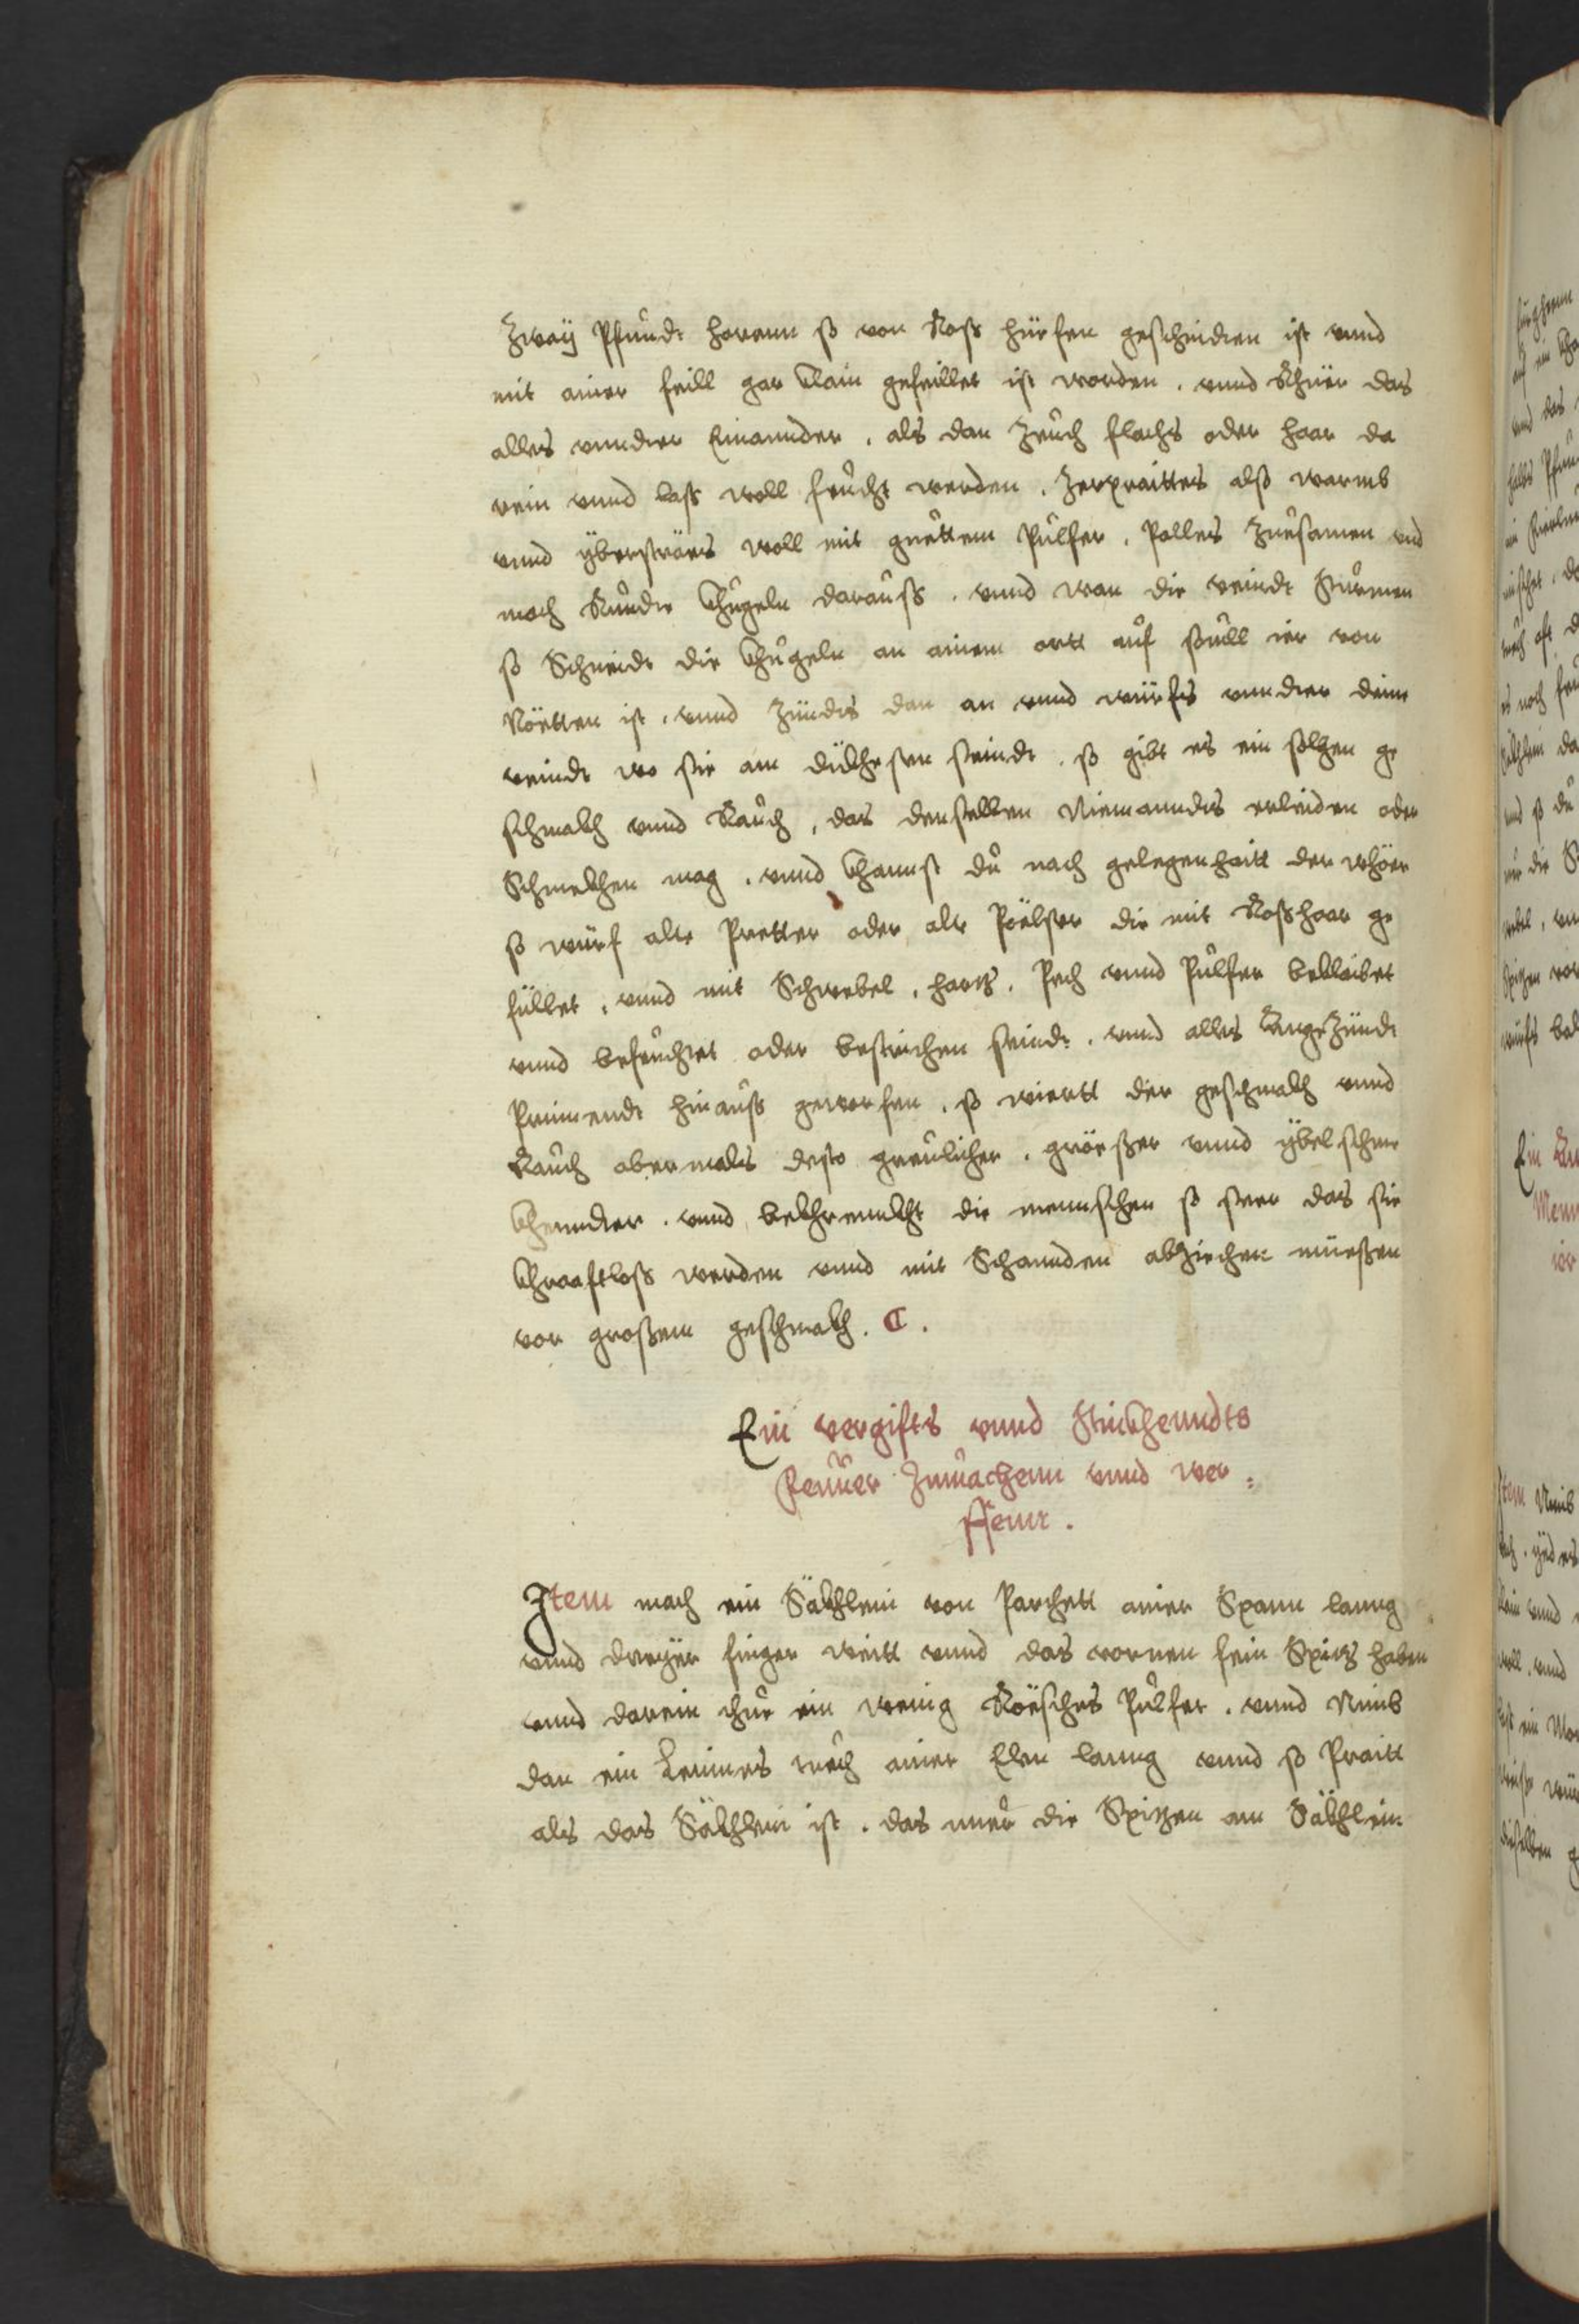 Zwaÿ Pfundt horenn so von Ross hüefen geschniden ist vnnd
mit ainer feill gar klain gefeillet ist worden. vnnd Rhüer das
alles vnnder Einannder, als dan zeuch flachs oder haar da
rein vnnd lass woll feucht werden. Zerpraittes also warmb
vnnd ÿberseräes woll mit guettem Pulfer. Palles zuesamen vnd
mach Runde khugeln darauss. vnnd wan die veindt Stürmen
so Schneidt die khugeln an ainem ortt auf souill ier von
Nöetten ist. vnnd zündts dan an vnnd würfs vnnder deine
veindt wo sie am dickhesten seindt. so gibt es ein solhen ge
schmakh vnnd Rauch, das denselben Niemanndts erleiden oder
Schmekhen mag. vnnd khannst du nach gelegenhaitt der whöer
so würf alte Pretter oder alte Pölster die mit Rosshaar ge
füllet, vnnd mit Schwebel, hartz, Pech vnnd Pulfer bekleibet
vnnd befeuchtet oder bestrichen seindt. vnnd alles AngeZündt
Prinnendt hinauss geworfen. so wiertt der geschmakh vnnd
Rauch abermals desto greulicher, gröesser vnnd ÿbelschme
khennder. vnnd bekhrennkht die mennschen so seer das sie
khraaftloss werden vnnd mit Schannden abziechen müessen
vor grossem geschmakh. C.
Ein vergifts vnnd stinkhenndts
Feuuer Zumachenn vnnd wer=
ffenn.
Item mach ein Säkhlein von Parchett ainer Spann lanng
vnnd dreÿer finger weitt vnnd das vornen fein Spitz haben
vnnd darein thue ein wenig Röesches Pulfer. vnnd Nimb
dan ein Leines tuech ainer Elen lanng vnnd so Praitt
als das Säkhlein ist. das nuer die Spitzen am Säkhlein